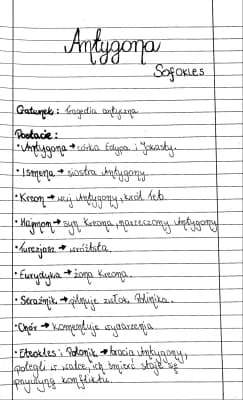 Antygona
Sofokles
Gatunek: tragedia antyczna
Postacie:
• Antygona → córka Edypa i Jokasty.
• Ismena → siostra Antygony.
• Kreon → wuj Antygony, król Teb.
• Hajmon → syn Kreona, narzeczony Antygony
• Turezjasz → wróżbita.
• Eurydyka → żona Kreona.
• Strażnik → pilnuje zwłok Polinika.
• Chór → komentuje wydarzenia
• Eteokles i Polonik → bracia Antygony,
polegli w walce, ich śmierć staje się
przyczyną konfliktu.